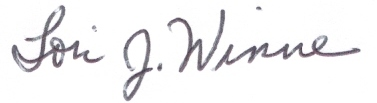 Lori J. Winne